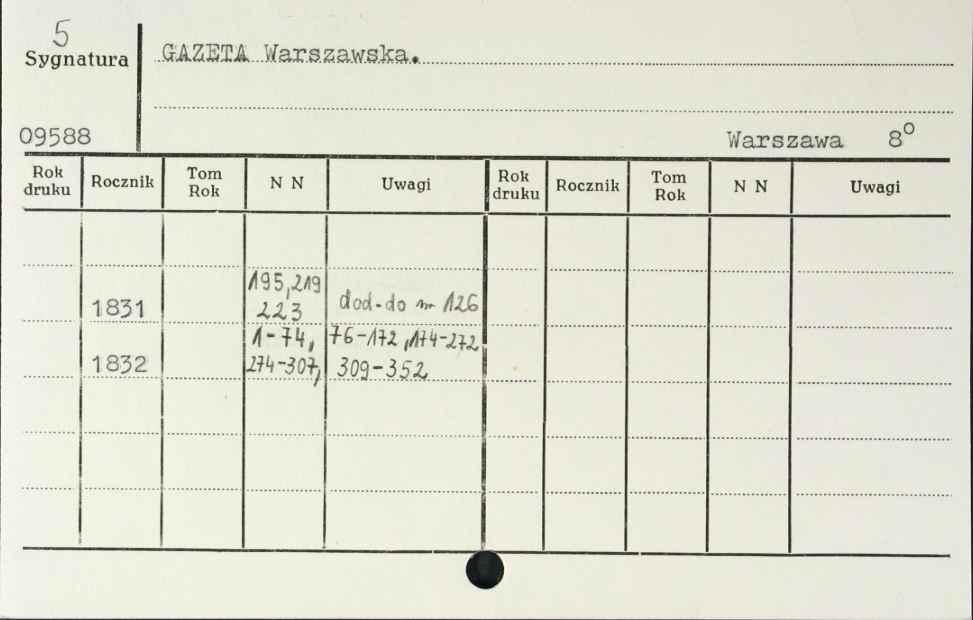 5
Sygnatura
GAZETA Warszawska.
09588
Warszawa 8°
Rok druku Rocznik Tom Rok N N Uwagi Rok druku Rocznik Tom Rok N N Uwagi
195, 219
1831 223 dod-do nr 126
1-74, 76-172, 174-272
1832 274-307, 309-352